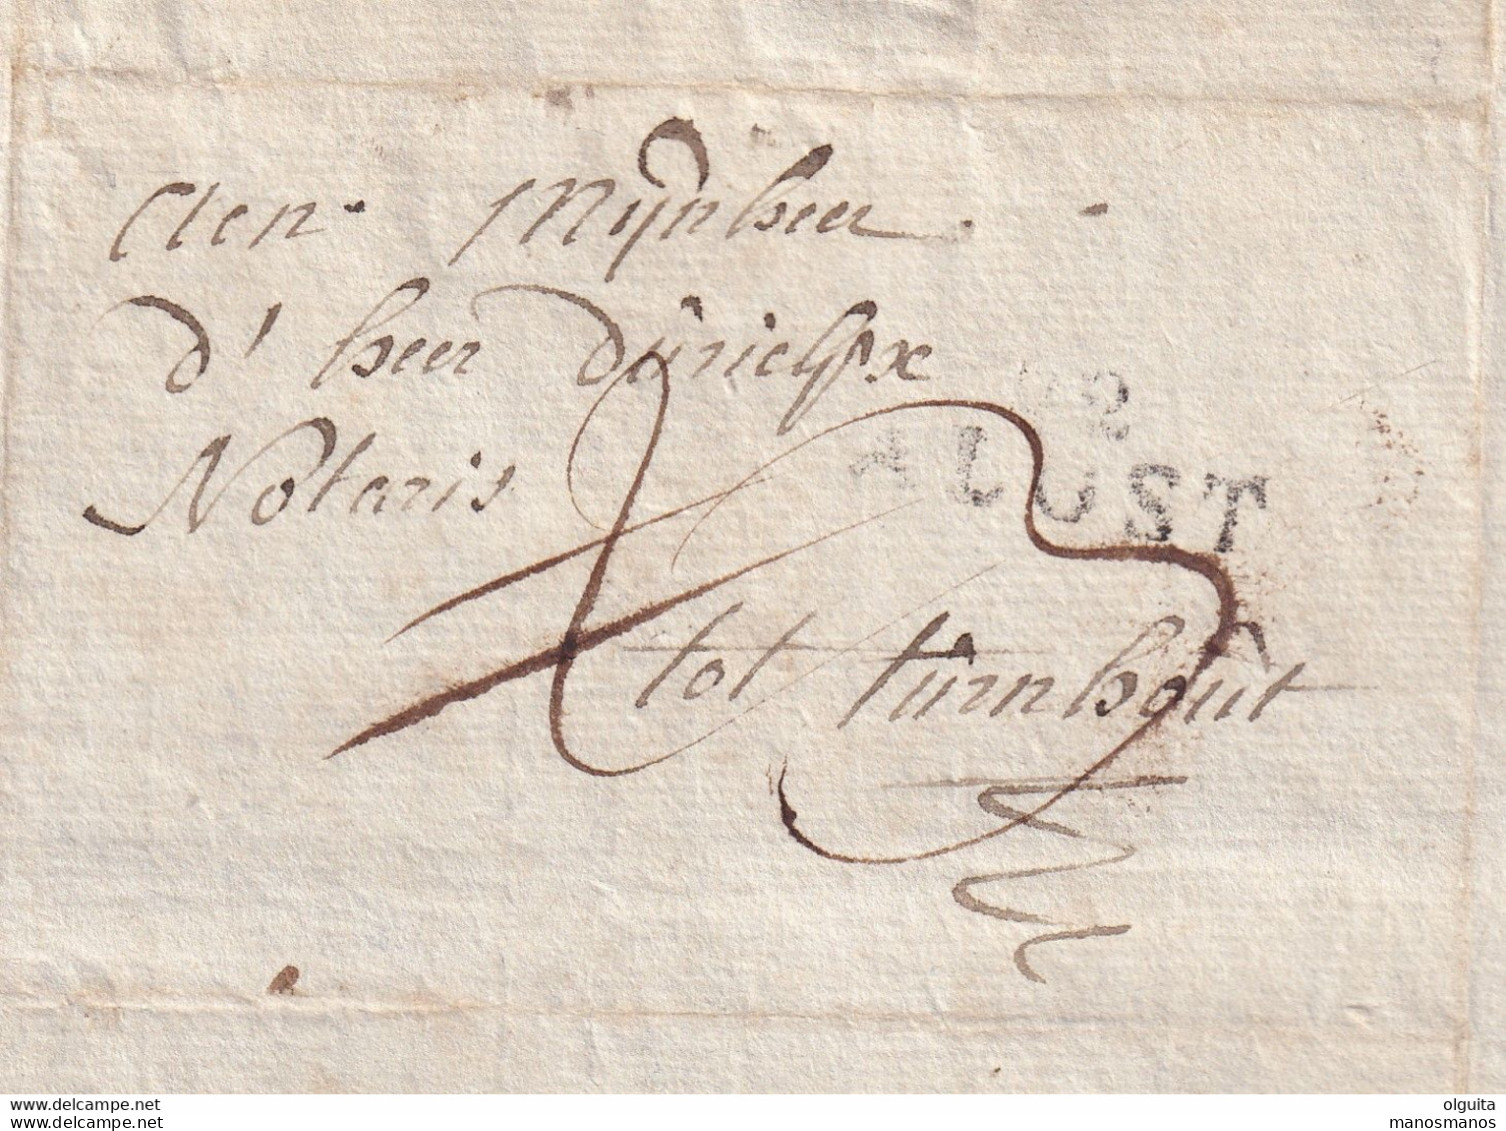 Aen Mijnheer
d' heer
Notaris
92
ALOST
tot turnhout
delcampe.net
olguita
manosmanos